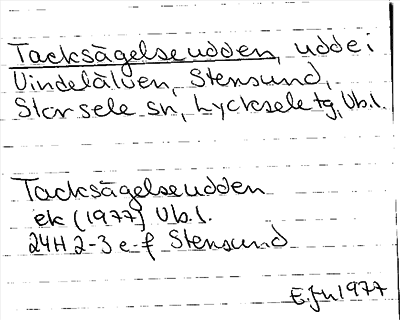 Tacksägelseudden, udde i
Vindelälven, Stensund,
Storsele sn, Lycksele tg, Vb.l.
Tacksägelseudden
ek (1977) Vb.l.
24H 2-3 e-f Stensund
1977